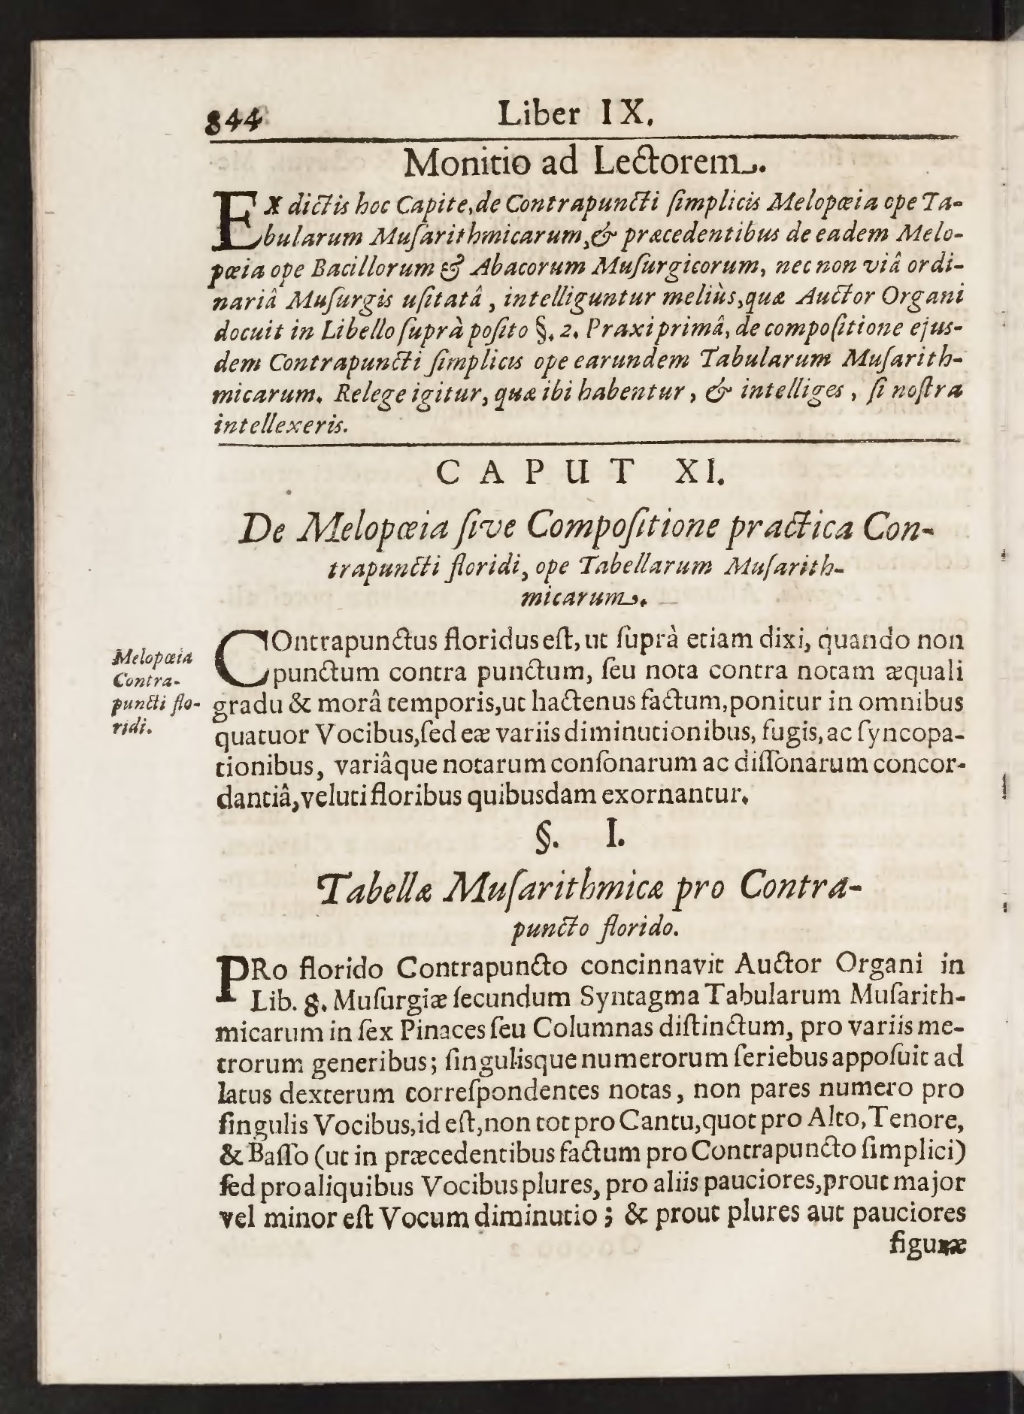 844 Liber IX.
Monitio ad Lectorem.
EX dictis hoc Capite, de Contrapuncti ſimplicis Melopœia ope Ta-
bularum Muſarithmicarum, & præcedentibus de eadem Melo-
pœia ope Bacillorum & Abacorum Muſurgicorum, nec non viâ ordi-
nariâ Muſurgis uſitatâ, intelliguntur meliùs, quæ Auctor Organi
docuit in Libello ſuprà poſito §. 2. Praxi primâ, de compoſitione ejus-
dem Contrapuncti ſimplicis ope earundem Tabularum Muſarith-
micarum. Relege igitur, quæ ibi habentur, & intelliges, ſi noſtra
intellexeris.
CAPUT XI.
De Melopœia ſive Compoſitione practica Con-
trapuncti floridi, ope Tabellarum Muſarith-
micarum.
Melopœia
Contra-
puncti flo-
ridi.
COntrapunctus floridus eſt, ut ſuprà etiam dixi, quando non
punctum contra punctum, ſeu nota contra notam æquali
gradu & morâ temporis, ut hactenus factum, ponitur in omnibus
quatuor Vocibus, ſed eæ variis diminutionibus, fugis, ac ſyncopa-
tionibus, variâque notarum conſonarum ac diſſonarum concor-
dantiâ, veluti floribus quibusdam exornantur.
§. I.
Tabellæ Muſarithmicæ pro Contra-
puncto florido.
PRo florido Contrapuncto concinnavit Auctor Organi in
Lib. 8. Muſurgiæ ſecundum Syntagma Tabularum Muſarith-
micarum in ſex Pinaces ſeu Columnas diſtinctum, pro variis me-
trorum generibus; ſingulisque numerorum ſeriebus appoſuit ad
latus dexterum correſpondentes notas, non pares numero pro
ſingulis Vocibus, id eſt, non tot pro Cantu, quot pro Alto, Tenore,
& Baſſo (ut in præcedentibus factum pro Contrapuncto ſimplici)
ſed pro aliquibus Vocibus plures, pro aliis pauciores, prout major
vel minor eſt Vocum diminutio; & prout plures aut pauciores
figuræ